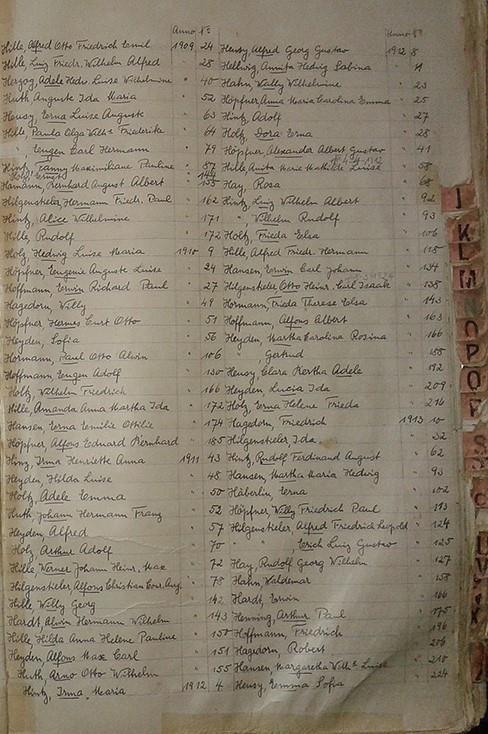 Anno No
Hille, Alfred Otto Friedrich Emil 1909 24
Hille, Luig Friedr. Wilhelm Alfred " 28
Herzog, Adele Hedw. Luise Wilhelmine " 40
Huth Auguste Ida Maria " 52
Heusy, Erna Luise Auguste " 63
Hille, Paula Olga Wilh. Friederike " 64
" Eugen Carl Hermann " 79
Hintz, Fanny Maximiliane Pauline " 87
Hamann, Reinhard August Albert " 155
Hilgenstieler, Hermann Friedr. Paul " 162
Hintz, Alice Wilhelmine " 171
Hille, Rudolf " 172
Holz, Hedwig Luise Maria 1910 9
Höpfner, Eugenie Auguste Luise " 24
Hoffmann, Erwin Richard Paul " 27
Hagedorn, Willy " 49
Höpfner, Hermes Curt Otto " 51
Heyden, Sofia " 56
Hormann, Paul Otto Alwin " 106
Hoffmann, Eugen Adolf " 130
Holtz, Wilhelm Friedrich " 166
Hille, Amanda Anna Martha Ida " 172
Hansen, Erna Emilie Ottilie " 174
Höpfner, Alfons Eduard Bernhard " 185
Hinz, Irma Henriette Anna 1911 43
Heyden, Hilda Luise " 48
Holtz, Adele Emma " 50
Huth, Johann Hermann Franz " 52
Heyden, Alfred " 57
Holz, Arthur Adolf " 70
Hille, Werner Johann Heinr. Max " 72
Hilgenstieler, Alfons Christian " 78
Hille, Willy Georg " 142
Hardt, Alwin Hermann Wilhelm " 143
Hille, Hilda Anna Helene Pauline " 157
Heyden, Alfons Max Carl " 151
Huth, Arno Otto Wilhelm " 155
Hintz, Irma Maria 1912 4
Anno No
Heusy, Alfred Georg Gustav 1912 8
Hellwig, Annita Hedwig Sabina " 11
Hahn, Wally Wilhelmine " 23
Höpfner, Anna Maria Carolina Emma " 25
Hintz, Adolf " 27
Holz, Dora Erna " 28
Höpfner, Alexander Albert Gustav " 41
Hille, Anita Marie Luise " 58
Hay, Rosa " 68
Hintz, Luig Wilhelm Albert " 92
" Wilhelm Rudolf " 93
Holtz, Frieda Elsa " 106
Hille, Alfred Friedr. Hermann " 115
Hansen, Erwin Carl Johann " 134
Hilgenstieler, Otto Heinr. Isaak " 138
Hormann, Frida Therese Elsa " 143
Hoffmann, Alfons Albert " 163
Heyden, Martha Carolina Rosina " 166
" Gertrud " 188
Heusy, Clara Bertha Adele " 192
Heyden, Lucia Ida " 209
Holz, Erna Helene Frieda " 216
Hagedorn, Friedrich 1913 10
Hilgenstieler, Ida " 32
Hintz, Rudolf Ferdinand August " 62
Hansen, Martha Maria Hedwig " 93
Häberlin, Erna " 102
Höpfner, Willy Friedrich Paul " 113
Hilgenstieler, Alfred Friedrich Leopold " 124
" Erich Luig Gustav " 125
Hay, Rudolf Georg Wilhelm " 127
Hahn, Waldemar " 158
Hardt, Erwin " 166
Henning, Arthur Paul " 175
Hoffmann, Friedrich " 196
Hagedorn, Robert " 206
Hansen, Margaretha Wilh. Luise " 210
Heusy, Emma Sofia " 224
I
K
L
M
O
P
Q